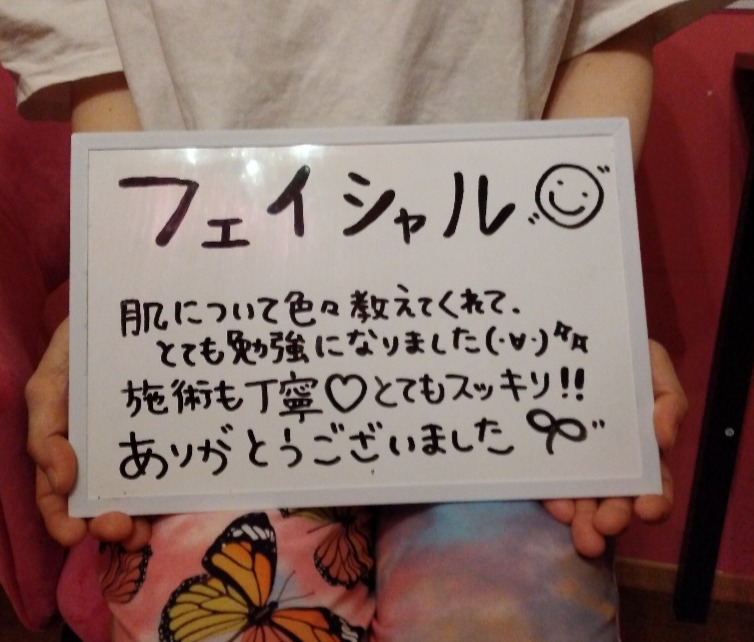 フェイシャル
肌について色々教えてくれて、
とても勉強になりました(·∀·)
施術も丁寧♡とてもスッキリ!!
ありがとうございました